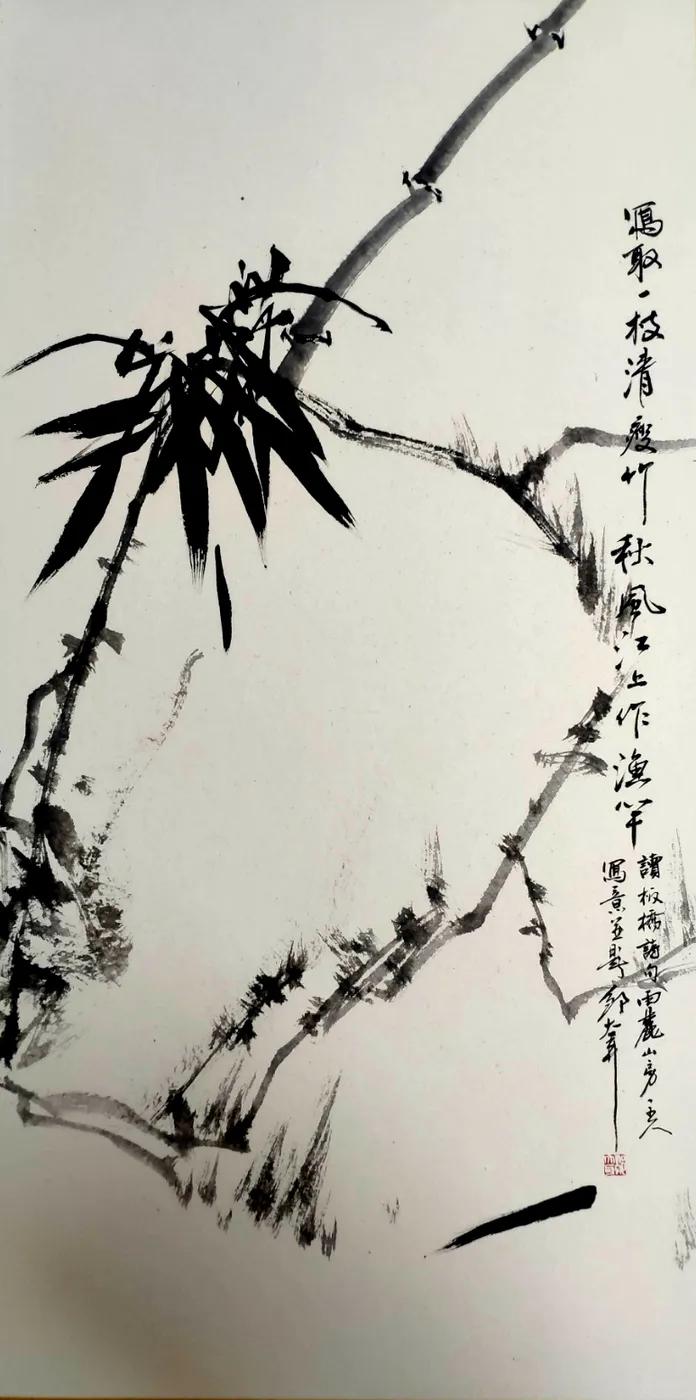 寫取一枝清瘦竹秋風江上作漁竿
讀板橋詩句雨麓山房主人
寫意並題